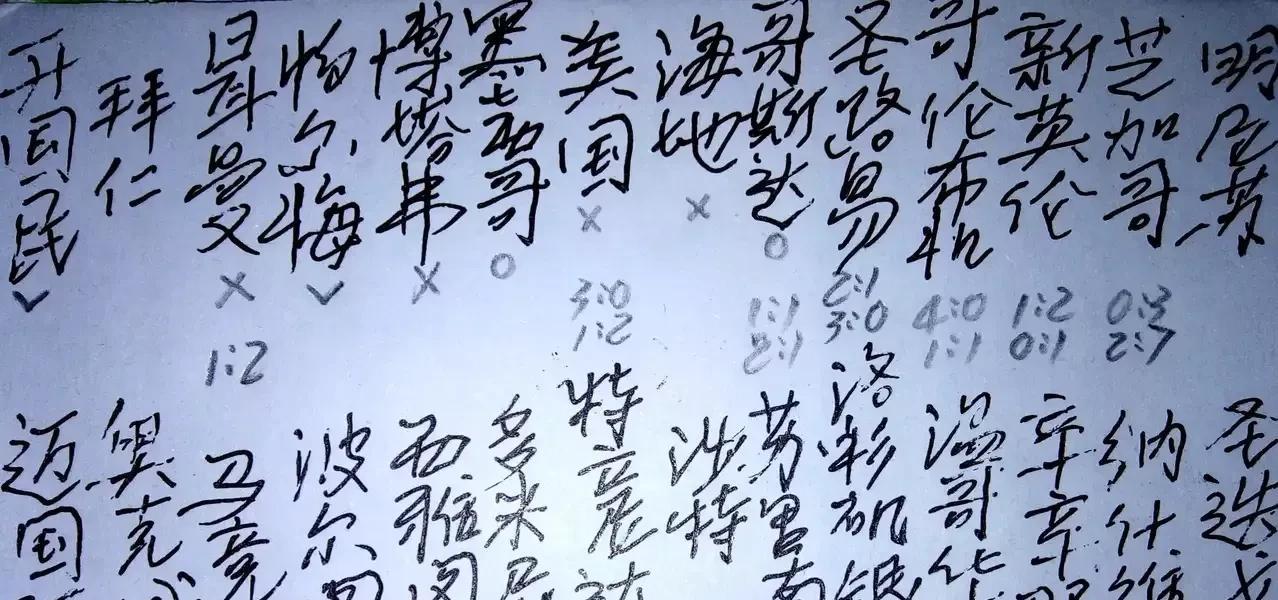 国民
拜仁
曼
1:2
帕尔梅
博塔弗
墨西哥
美国
3:0
1:2
海地
哥斯达
1:1
2:1
圣路易
2:1
3:0
哥伦布
4:0
1:1
新英伦
1:2
0:1
芝加哥
0:3
2:7
明尼苏
迈国
奥克
马竞
波尔
西雅图
多米尼
特立尼达
沙特
苏里南
洛杉矶银
温哥华
辛辛那
纳什维
圣迭戈